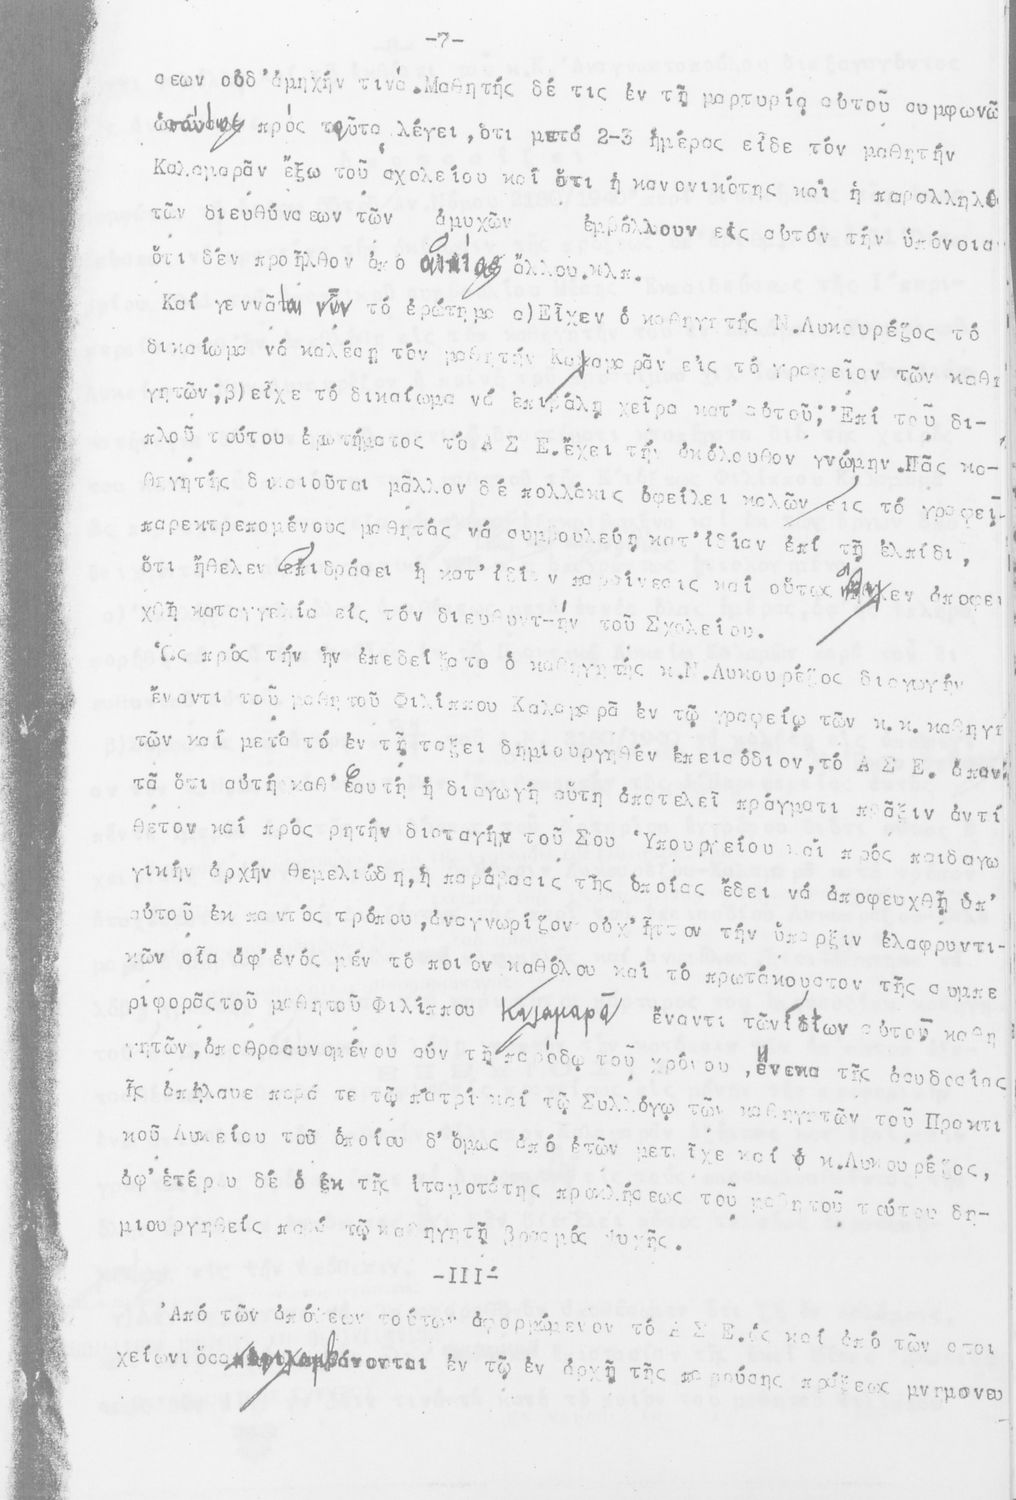 -7-
σεων οὐδ'ἀμηχήν τινά.Μαθητής δέ τις ἐν τῇ μαρτυρίᾳ αὐτοῦ συμφωνῶ
πρός ταῦτα λέγει,ὅτι μετά 2-3 ἡμέρας εἶδε τόν μαθητήν
Καλαμαρᾶν ἔξω τοῦ σχολείου καί ὅτι ἡ κανονικότης καί ἡ παραλληλό
τῶν διευθύνσεων τῶν ἀμυχῶν ἐμβάλλουν εἰς αὐτόν τήν ὑπόνοια
ὅτι δέν προῆλθον ἀπό αἰτίας ἄλλου.κλπ.
Καί γεννᾶται νῦν τό ἐρώτημα α)Εἶχεν ὁ καθηγητής Ν.Λυκουρέζος τό
δικαίωμα νά καλέσῃ τόν μαθητήν Καλαμαρᾶν εἰς τό γραφεῖον τῶν καθη
γητῶν;β)εἶχε τό δικαίωμα νά ἐπιβάλῃ χεῖρα κατ'αὐτοῦ;'Επί τοῦ δι-
πλοῦ τούτου ἐρωτήματος τό Α Σ Ε.ἔχει τήν ἀκόλουθον γνώμην.Πᾶς κα-
θηγητής δικαιοῦται μᾶλλον δέ πολλάκις ὀφείλει καλῶν εἰς τό γραφεῖ-
παρεκτρεπομένους μαθητάς νά συμβουλεύῃ κατ'ἰδίαν ἐπί τῇ ἐλπίδι,
ὅτι ἤθελεν ἐπιδράσει ἡ κατ'ἰδίαν παραίνεσις καί οὕτως ἀποφευ
χθῆ καταγγελία εἰς τόν διευθυντ-ήν τοῦ Σχολείου.
Ὡς πρός τήν ἥν ἐπεδείξατο ὁ καθηγητής κ.Ν.Λυκουρέζος διαγωγήν
ἔναντι τοῦ μαθητοῦ Φιλίππου Καλαμαρᾶ ἐν τῷ γραφείῳ τῶν κ.κ.καθηγη
τῶν καί μετά τό ἐν τῇ τάξει δημιουργηθέν ἐπεισόδιον,τό Α Σ Ε. ἀπαν
τᾶ ὅτι αὐτή καθ'ἑαυτή ἡ διαγωγή αὕτη ἀποτελεῖ πράγματι πρᾶξιν ἀντί
θετον καί πρός ρητήν διαταγήν τοῦ Σου Ὑπουργείου καί πρός παιδαγω
γικήν ἀρχήν θεμελιώδη,ἡ παράβασις τῆς ὁποίας ἔδει νά ἀποφευχθῇ ὑπ'
αὐτοῦ ἐκ παντός τρόπου,ἀναγνωρίζον οὐχ'ἧττον τήν ὕπαρξιν ἐλαφρυντι-
κῶν οἷα ἀφ'ἑνός μέν τό ποιόν καθόλου καί τό πρωτάκουστον τῆς συμπε
ριφορᾶς τοῦ μαθητοῦ Φιλίππου Καλαμαρᾶ ἔναντι τῶν ἰδίων αὐτοῦ καθη
γητῶν,ἀποθρασυνομένου σύν τῇ παρόδῳ τοῦ χρόνου,ἕνεκα τῆς ἀσυδοσίας
ἧς ἀπήλαυε παρά τε τῷ πατρί καί τῷ Συλλόγῳ τῶν καθηγητῶν τοῦ Πρακτι
κοῦ Λυκείου τοῦ ὁποίου δ'ὅμως ἀπό ἐτῶν μετεῖχε καί ὁ κ.Λυκουρέζος,
ἀφ'ἑτέρου δέ ὁ ἐκ τῆς ἰταμοτάτης προκλήσεως τοῦ μαθητοῦ τούτου δη-
μιουργηθείς παρά τῷ καθηγητῇ βρασμός ψυχῆς.
-ΙΙΙ-
'Από τῶν ἀπόψεων τούτων ἀφορμώμενον τό Α Σ Ε.ὡς καί ἀπό τῶν στοι
χείων ὅσα περιλαμβάνονται ἐν τῷ ἐν ἀρχῇ τῆς παρούσης πράξεως μνημονευ